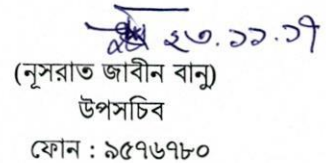 ২৩.১১.১৭
(নূসরাত জাবীন বানু)
উপসচিব
ফোন : ৯৫৭৬৭৮০